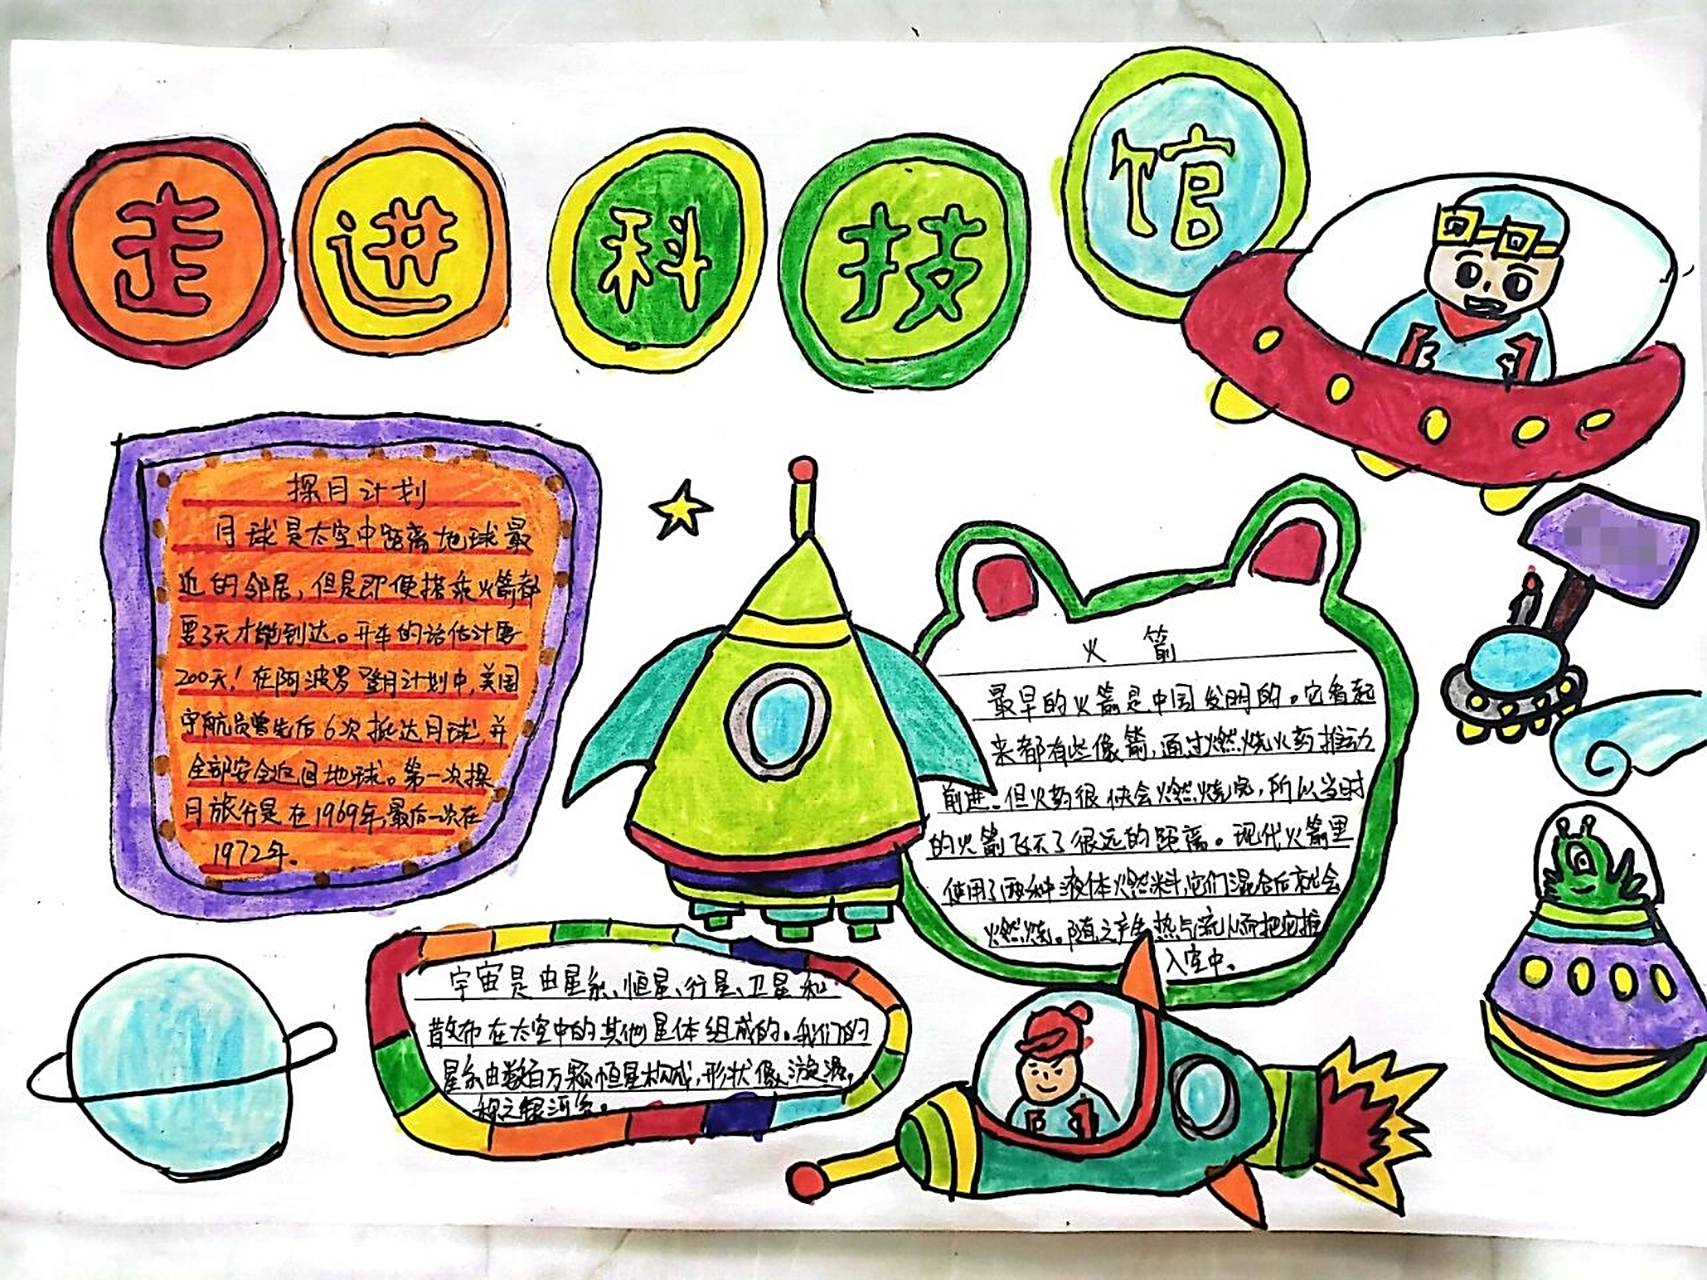 走进科技馆
探月计划
月球是太空中距离地球最
近的邻居，但是即便搭乘火箭都
要3天才能到达。开车的话估计要
200天！在阿波罗登月计划中，美国
宇航员曾先后6次抵达月球，并
全部安全返回地球。第一次探
月旅行是在1969年，最后一次在
1972年。
火箭
最早的火箭是中国发明的。它看起
来都有些像箭，通过燃烧火药推动
前进。但火药很快会燃烧完，所以当时
的火箭飞不了很远的距离。现代火箭里
使用了两种液体燃料，它们混合后就会
燃烧。随之产生热气流从而把它推
入空中。
宇宙是由星系、恒星、行星、卫星和
散布在太空中的其他星体组成的。我们的
星系由数百万颗恒星构成，形状像漩涡，
称之银河系。